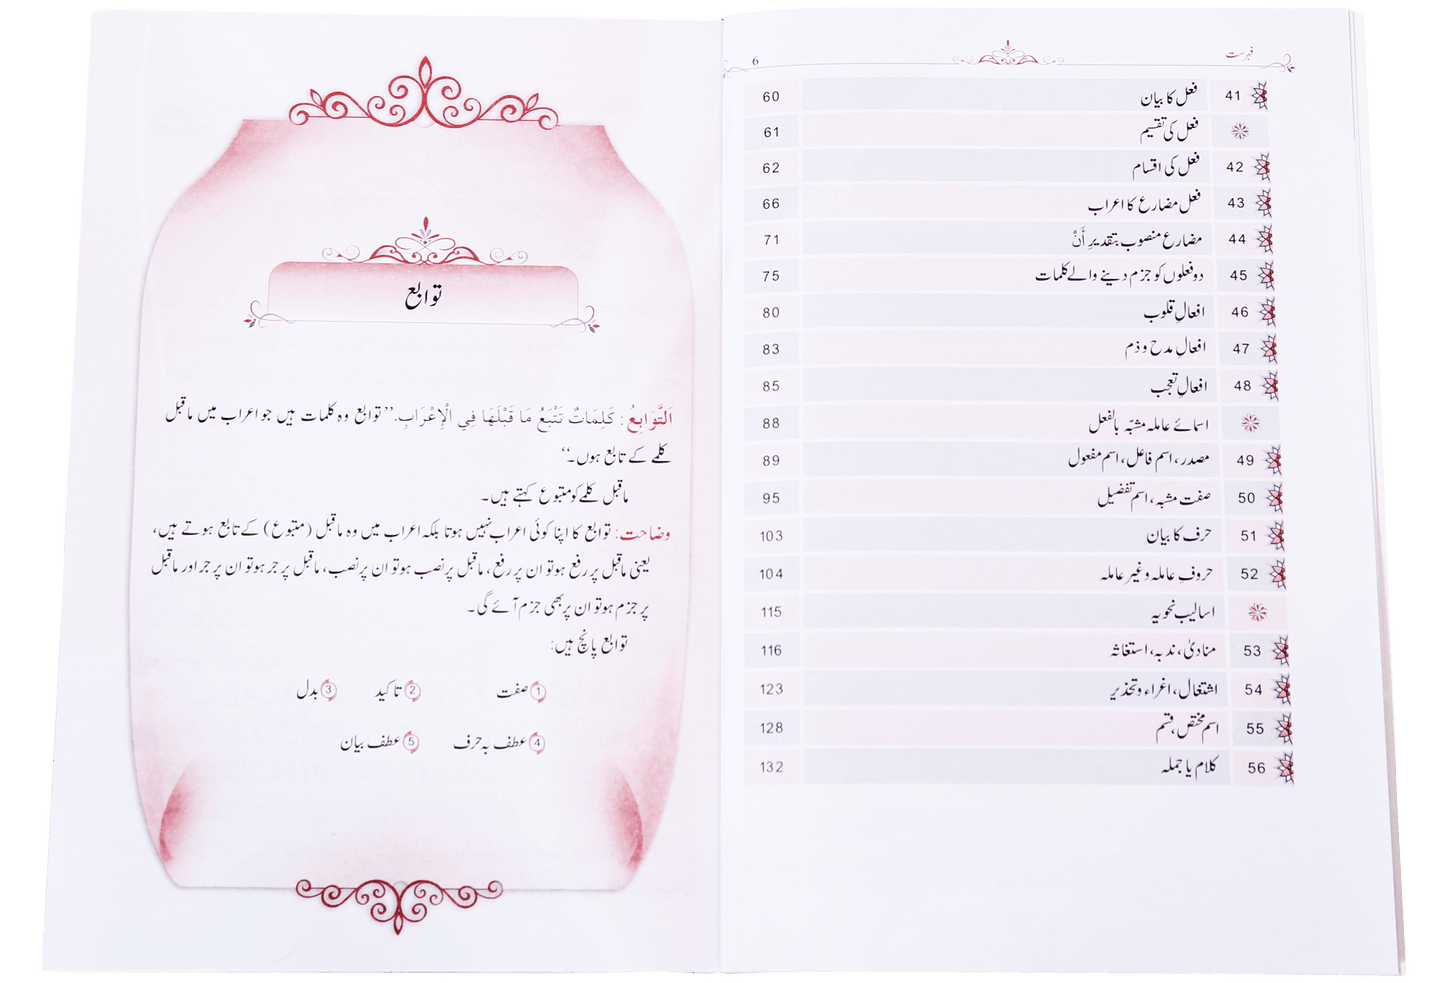 فہرست 6
41 فعل کا بیان 60
فعل کی تقسیم 61
42 فعل کی اقسام 62
43 فعل مضارع کا اعراب 66
44 مضارع منصوب بتقدیرِ أَنْ 71
45 دو فعلوں کو جزم دینے والے کلمات 75
46 افعالِ قلوب 80
47 افعالِ مدح و ذم 83
48 افعالِ تعجب 85
اسمائے عاملہ مشبّہ بالفعل 88
49 مصدر، اسم فاعل، اسم مفعول 89
50 صفت مشبہ، اسم تفضیل 95
51 حرف کا بیان 103
52 حروفِ عاملہ وغیر عاملہ 104
اسالیب نحویہ 115
53 منادیٰ، ندبہ، استغاثہ 116
54 اشتغال، اغراء وتحذیر 123
55 اسم مختص، قسم 128
56 کلام یا جملہ 132
توابع
اَلتَّوَابِعُ: كَلِمَاتٌ تَتْبَعُ مَا قَبْلَهَا فِي الْإِعْرَابِ. ’’توابع وہ کلمات ہیں جو اعراب میں ماقبل
کلمے کے تابع ہوں۔‘‘
ماقبل کلمے کو متبوع کہتے ہیں۔
وضاحت: توابع کا اپنا کوئی اعراب نہیں ہوتا بلکہ اعراب میں وہ ماقبل (متبوع) کے تابع ہوتے ہیں،
یعنی ماقبل پر رفع ہو تو ان پر رفع، ماقبل پر نصب ہو تو ان پر نصب، ماقبل پر جر ہو تو ان پر جر اور ماقبل
پر جزم ہو تو ان پر بھی جزم آئے گی۔
توابع پانچ ہیں:
① صفت ② تاکید ③ بدل
④ عطف بہ حرف ⑤ عطف بیان